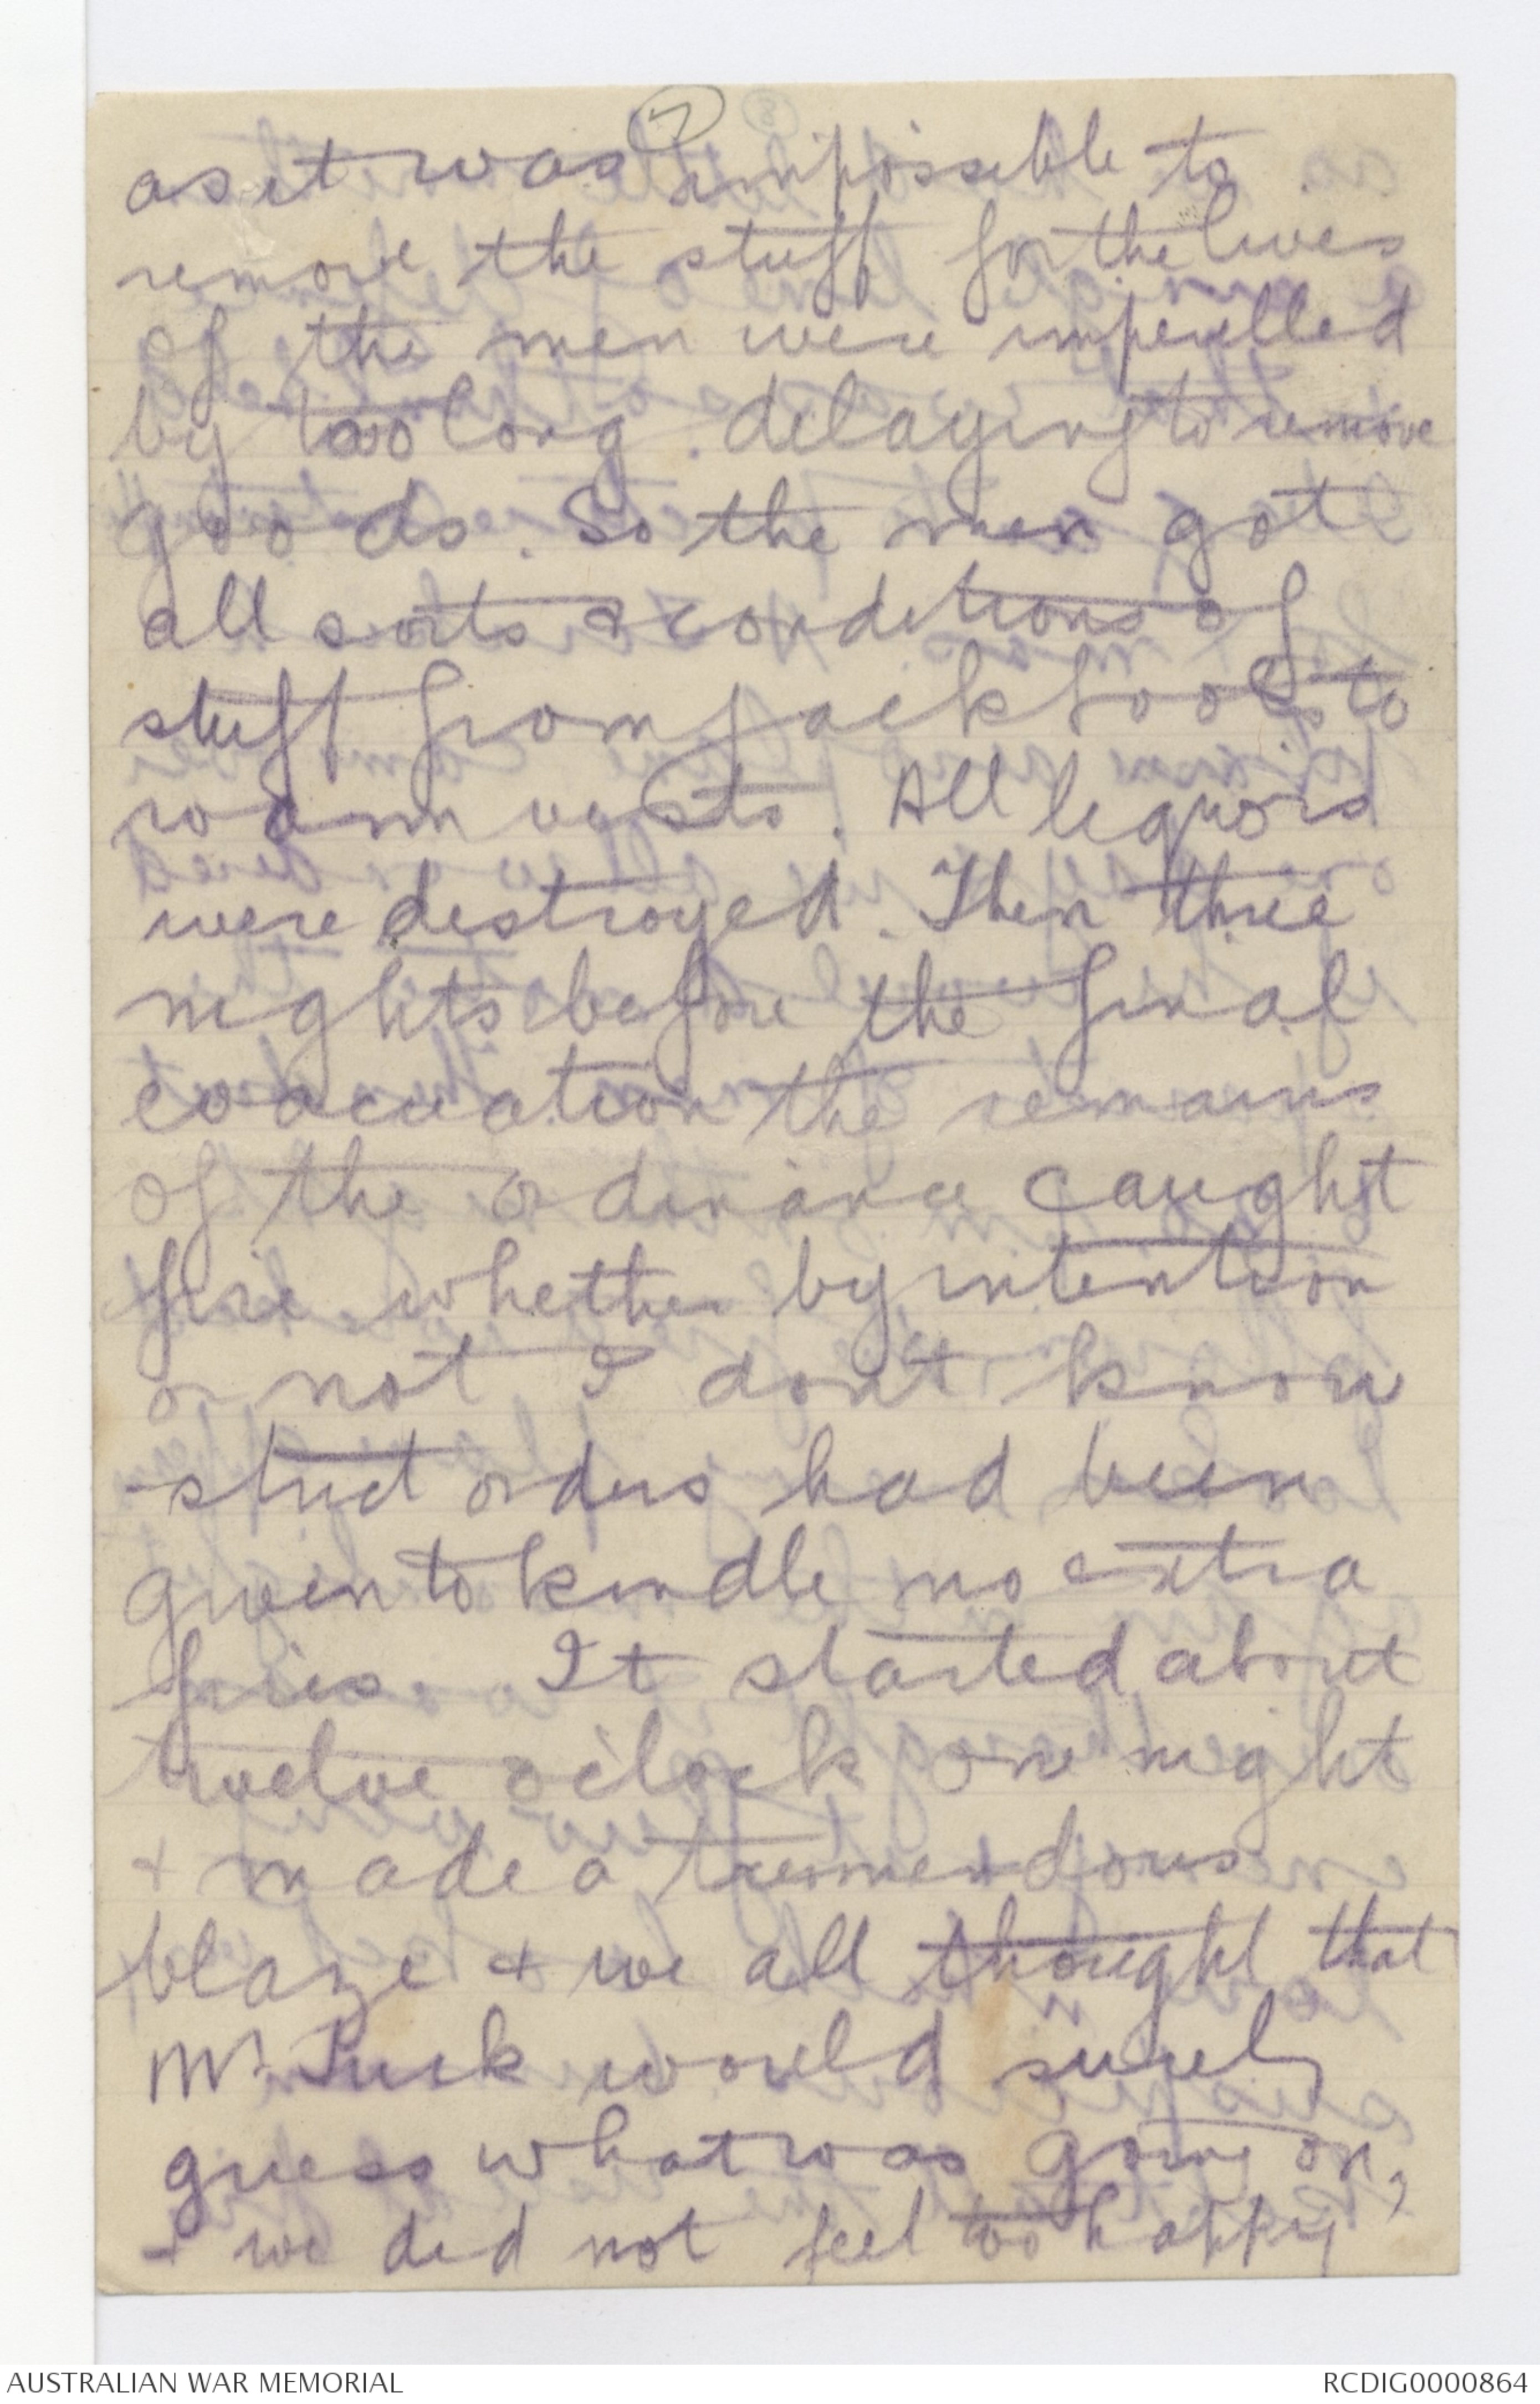 7
as it was impossible to
remove the stuff for the lives
of the men were imperilled
by too long delaying to remove
goods. So the men got
all sorts & conditions of
stuff from jack boots to
woolen vests. All liquors
were destroyed. Then three
nights before the final
evacuation the remains
of the ordinance caught
fire whether by intention
or not I don't know
- strict orders had been
given to kindle no extra
fires. It started about
twelve o'clock one night
+ made a tremendous
blaze + we all thought that
Mr. Turk would surely
guess what was going on,
+ we did not feel too happy
AUSTRALIAN WAR MEMORIAL
RCDIG0000864